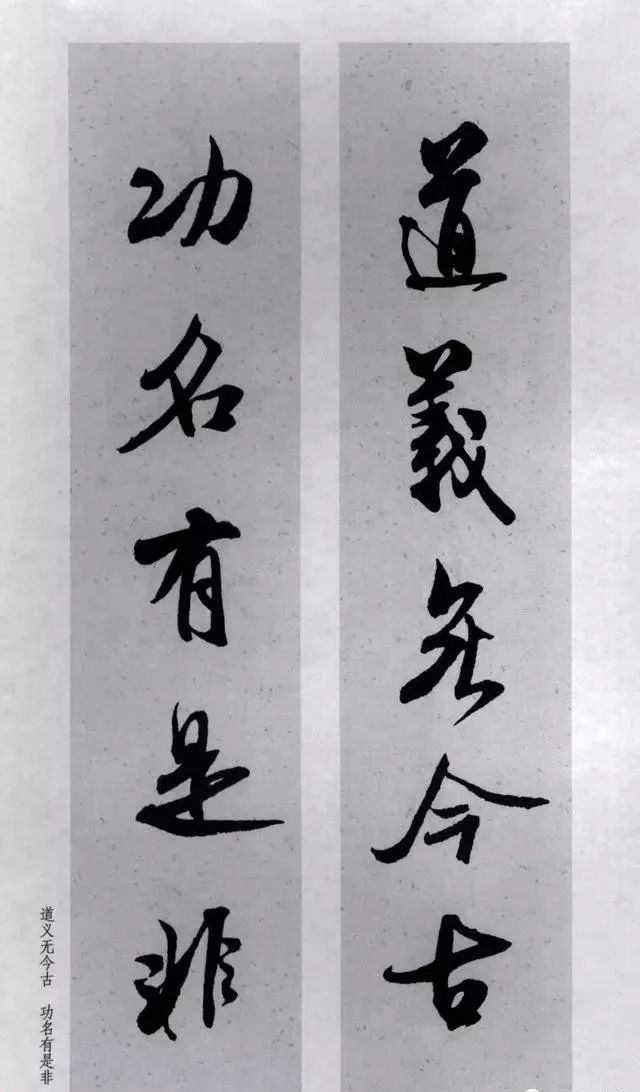 道義无今古
功名有是非
道义无今古 功名有是非